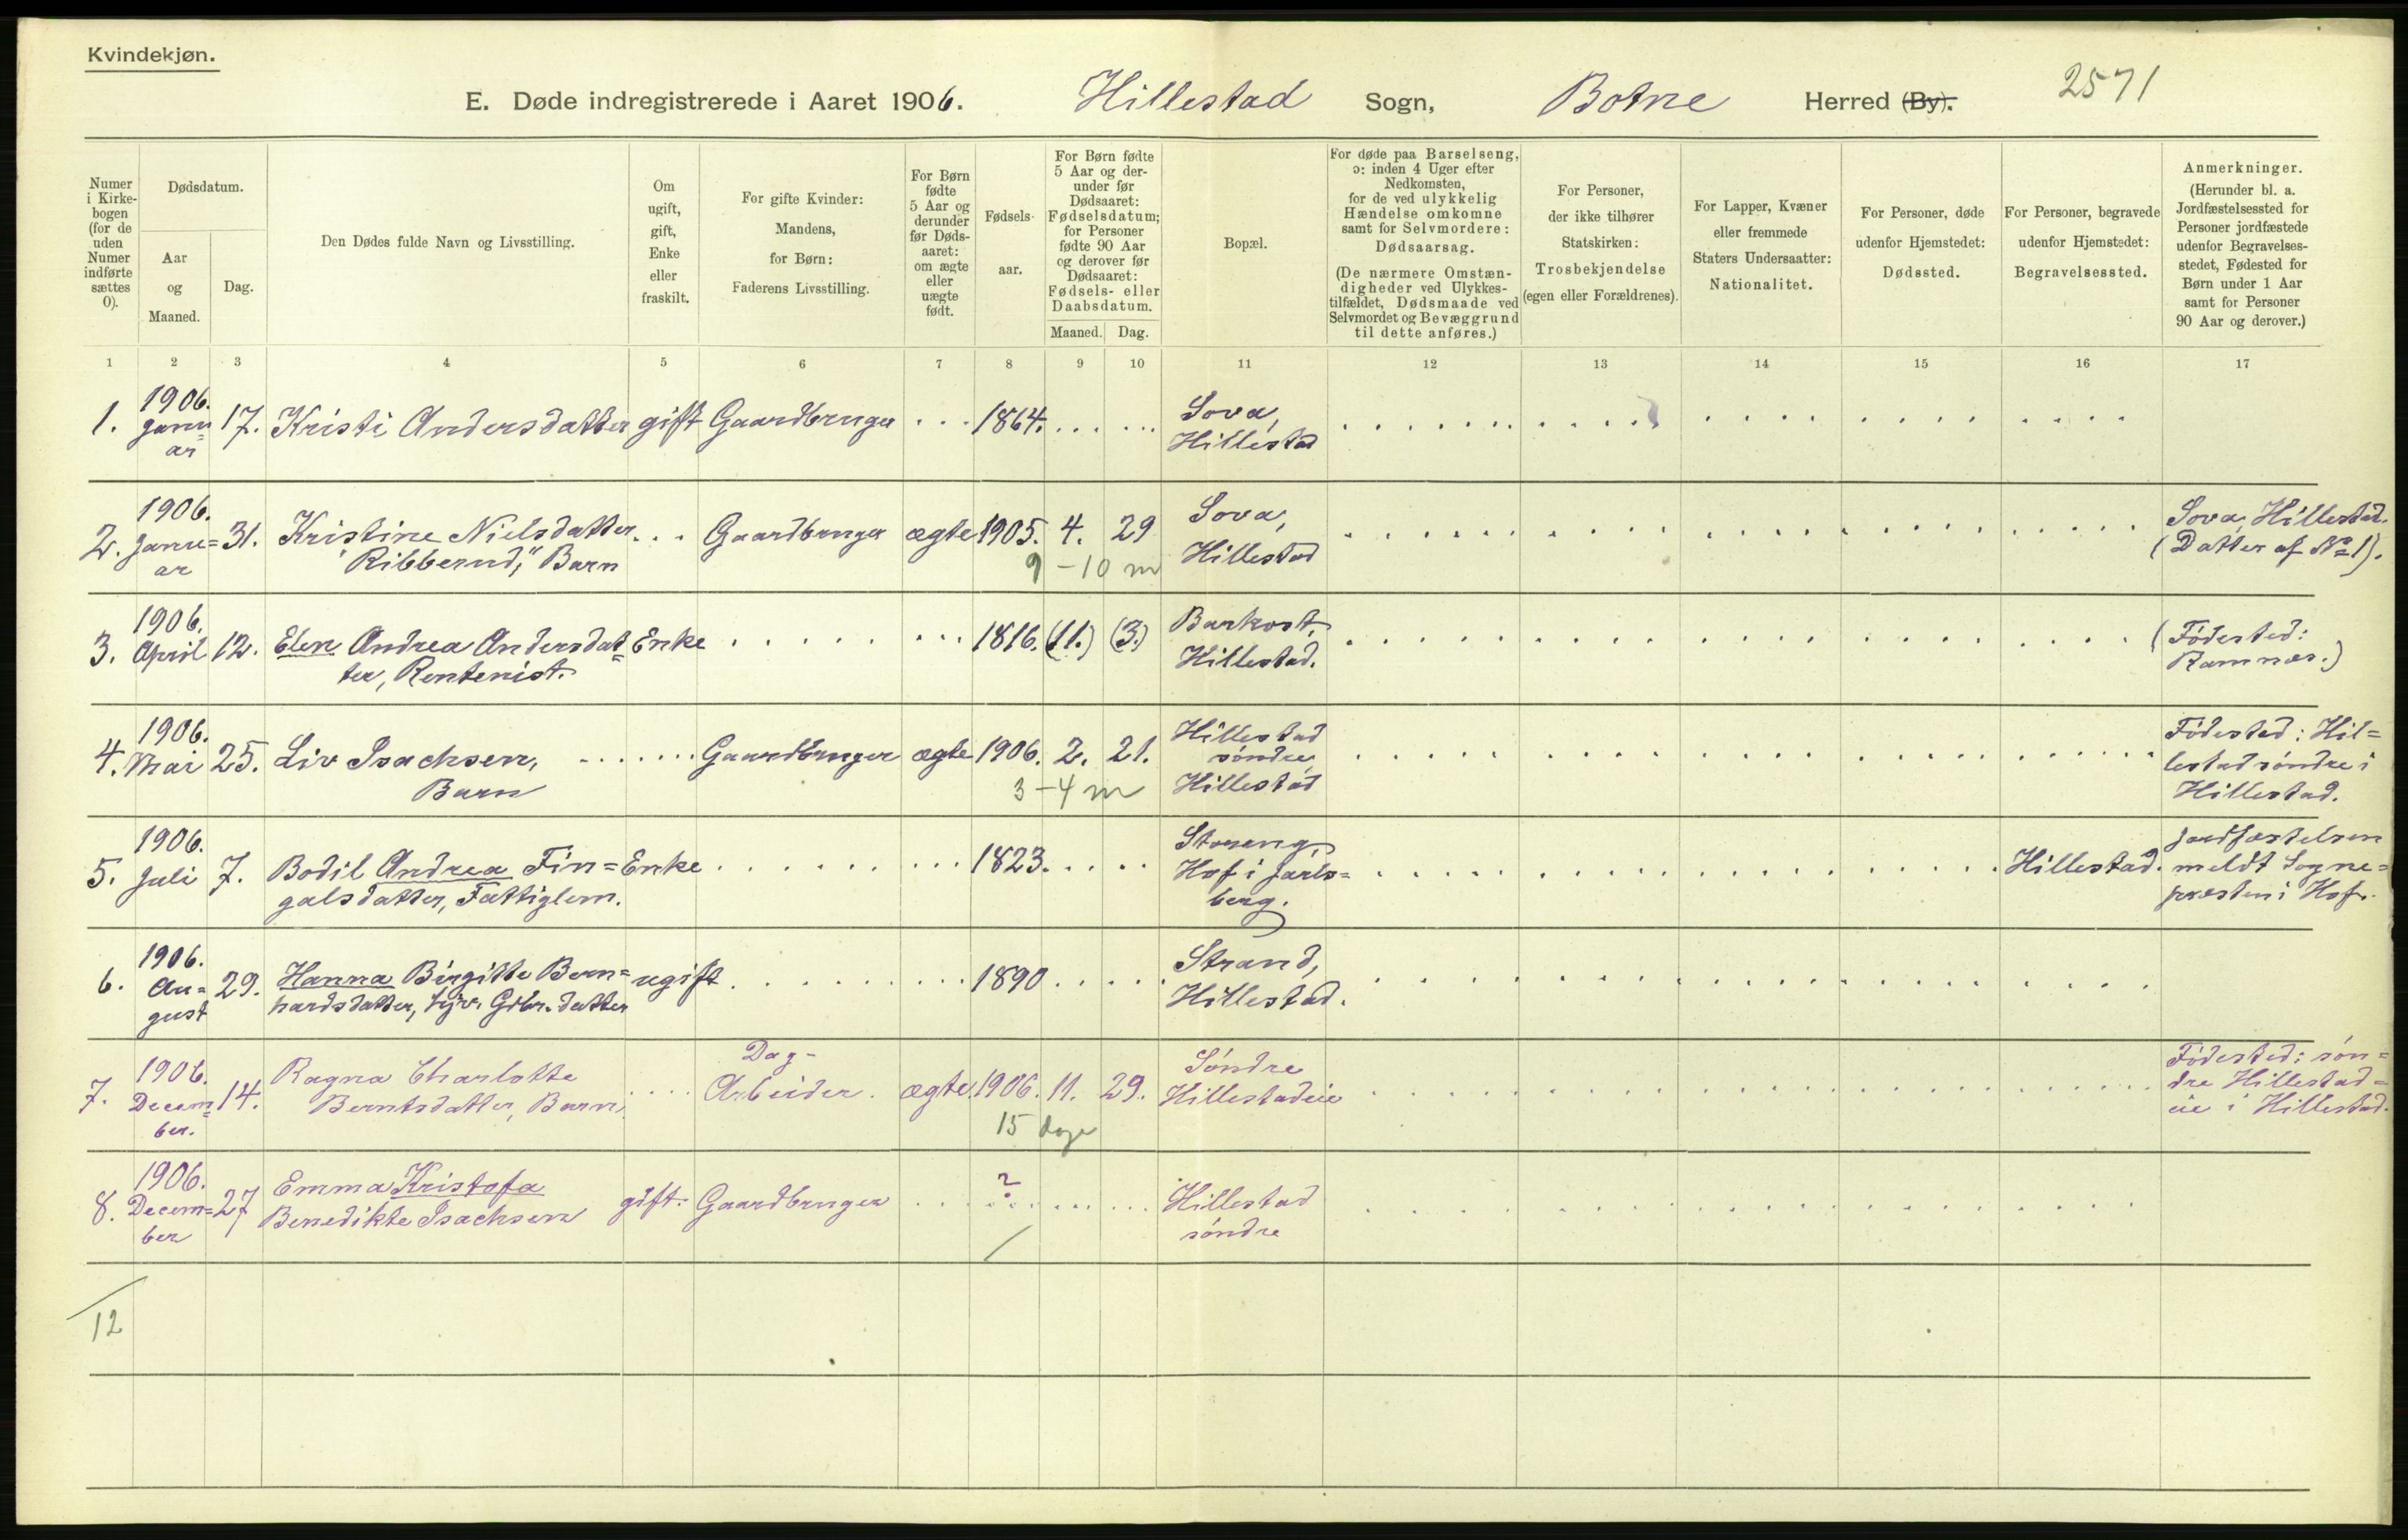 Kvindekjøn.
E. Døde indregistrerede i Aaret 1906. Hillestad Sogn, Botne Herred (By). 2571
Numer i Kirkebogen (for de uden Numer indførte sættes 0).
Dødsdatum.
Aar og Maaned.
Dag.
Den Dødes fulde Navn og Livsstilling.
Om ugift, gift, Enke eller fraskilt.
For gifte Kvinder: Mandens, for Børn: Faderens Livsstilling.
For Børn fødte 5 Aar og derunder før Dødsaaret: om ægte eller uægte født.
Fødselsaar.
For Børn fødte 5 Aar og derunder før Dødsaaret: Fødselsdatum; for Personer fødte 90 Aar og derover før Dødsaaret: Fødsels- eller Daabsdatum.
Maaned. Dag.
Bopæl.
For døde paa Barselseng, ɔ: inden 4 Uger efter Nedkomsten, for de ved ulykkelig Hændelse omkomne samt for Selvmordere: Dødsaarsag.
(De nærmere Omstændigheder ved Ulykkestilfældet, Dødsmaade ved Selvmordet og Bevæggrund til dette anføres.)
For Personer, der ikke tilhører Statskirken: Trosbekjendelse (egen eller Forældrenes).
For Lapper, Kvæner eller fremmede Staters Undersaatter: Nationalitet.
For Personer, døde udenfor Hjemstedet: Dødssted.
For Personer, begravede udenfor Hjemstedet: Begravelsessted.
Anmerkninger.
(Herunder bl. a. Jordfæstelsessted for Personer jordfæstede udenfor Begravelsesstedet, Fødested for Børn under 1 Aar samt for Personer 90 Aar og derover.)
1 2 3 4 5 6 7 8 9 10 11 12 13 14 15 16 17
1. 1906. Januar 17. Kristi Andersdatter gift Gaardbruger 1864. Sova, Hillestad
2. 1906. Januar 31. Kristine Nielsdatter "Ribberud," Barn Gaardbruger ægte 1905. 4. 29 Sova, Hillestad Sova, Hillestad. (Datter af No 1).
9-10 m
3. 1906. April 12. Elen Andrea Andersdatter, Rentenist. Enke 1816. (11.) (3.) Barkost, Hillestad. (Fødested: Ramnes.)
4. 1906. Mai 25. Liv Isachsen, Barn Gaardbruger ægte 1906. 2. 21. Hillestad søndre, Hillestad Fødested: Hillestad søndre i Hillestad.
3-4 m
5. 1906. Juli 7. Bodil Andrea Fingalsdatter, Fattiglem. Enke 1823. Storeng, Hof i Jarlsberg. Hillestad. Jordfæstelsen meldt Sognepræsten i Hof.
6. 1906. August 29. Hanna Birgitte Bernhardsdatter, Gdbr. datter ugift 1890 Strand, Hillestad.
7. 1906. December. 14. Ragna Charlotte Berntsdatter, Barn Dag-Arbeider. ægte. 1906. 11. 29. Søndre Hillestadeie Fødested: søndre Hillestadeie i Hillestad.
15 dage
8. 1906. December 27 Emma Kristofa Benedikte Isachsen gift. Gaardbruger ? Hillestad søndre
12